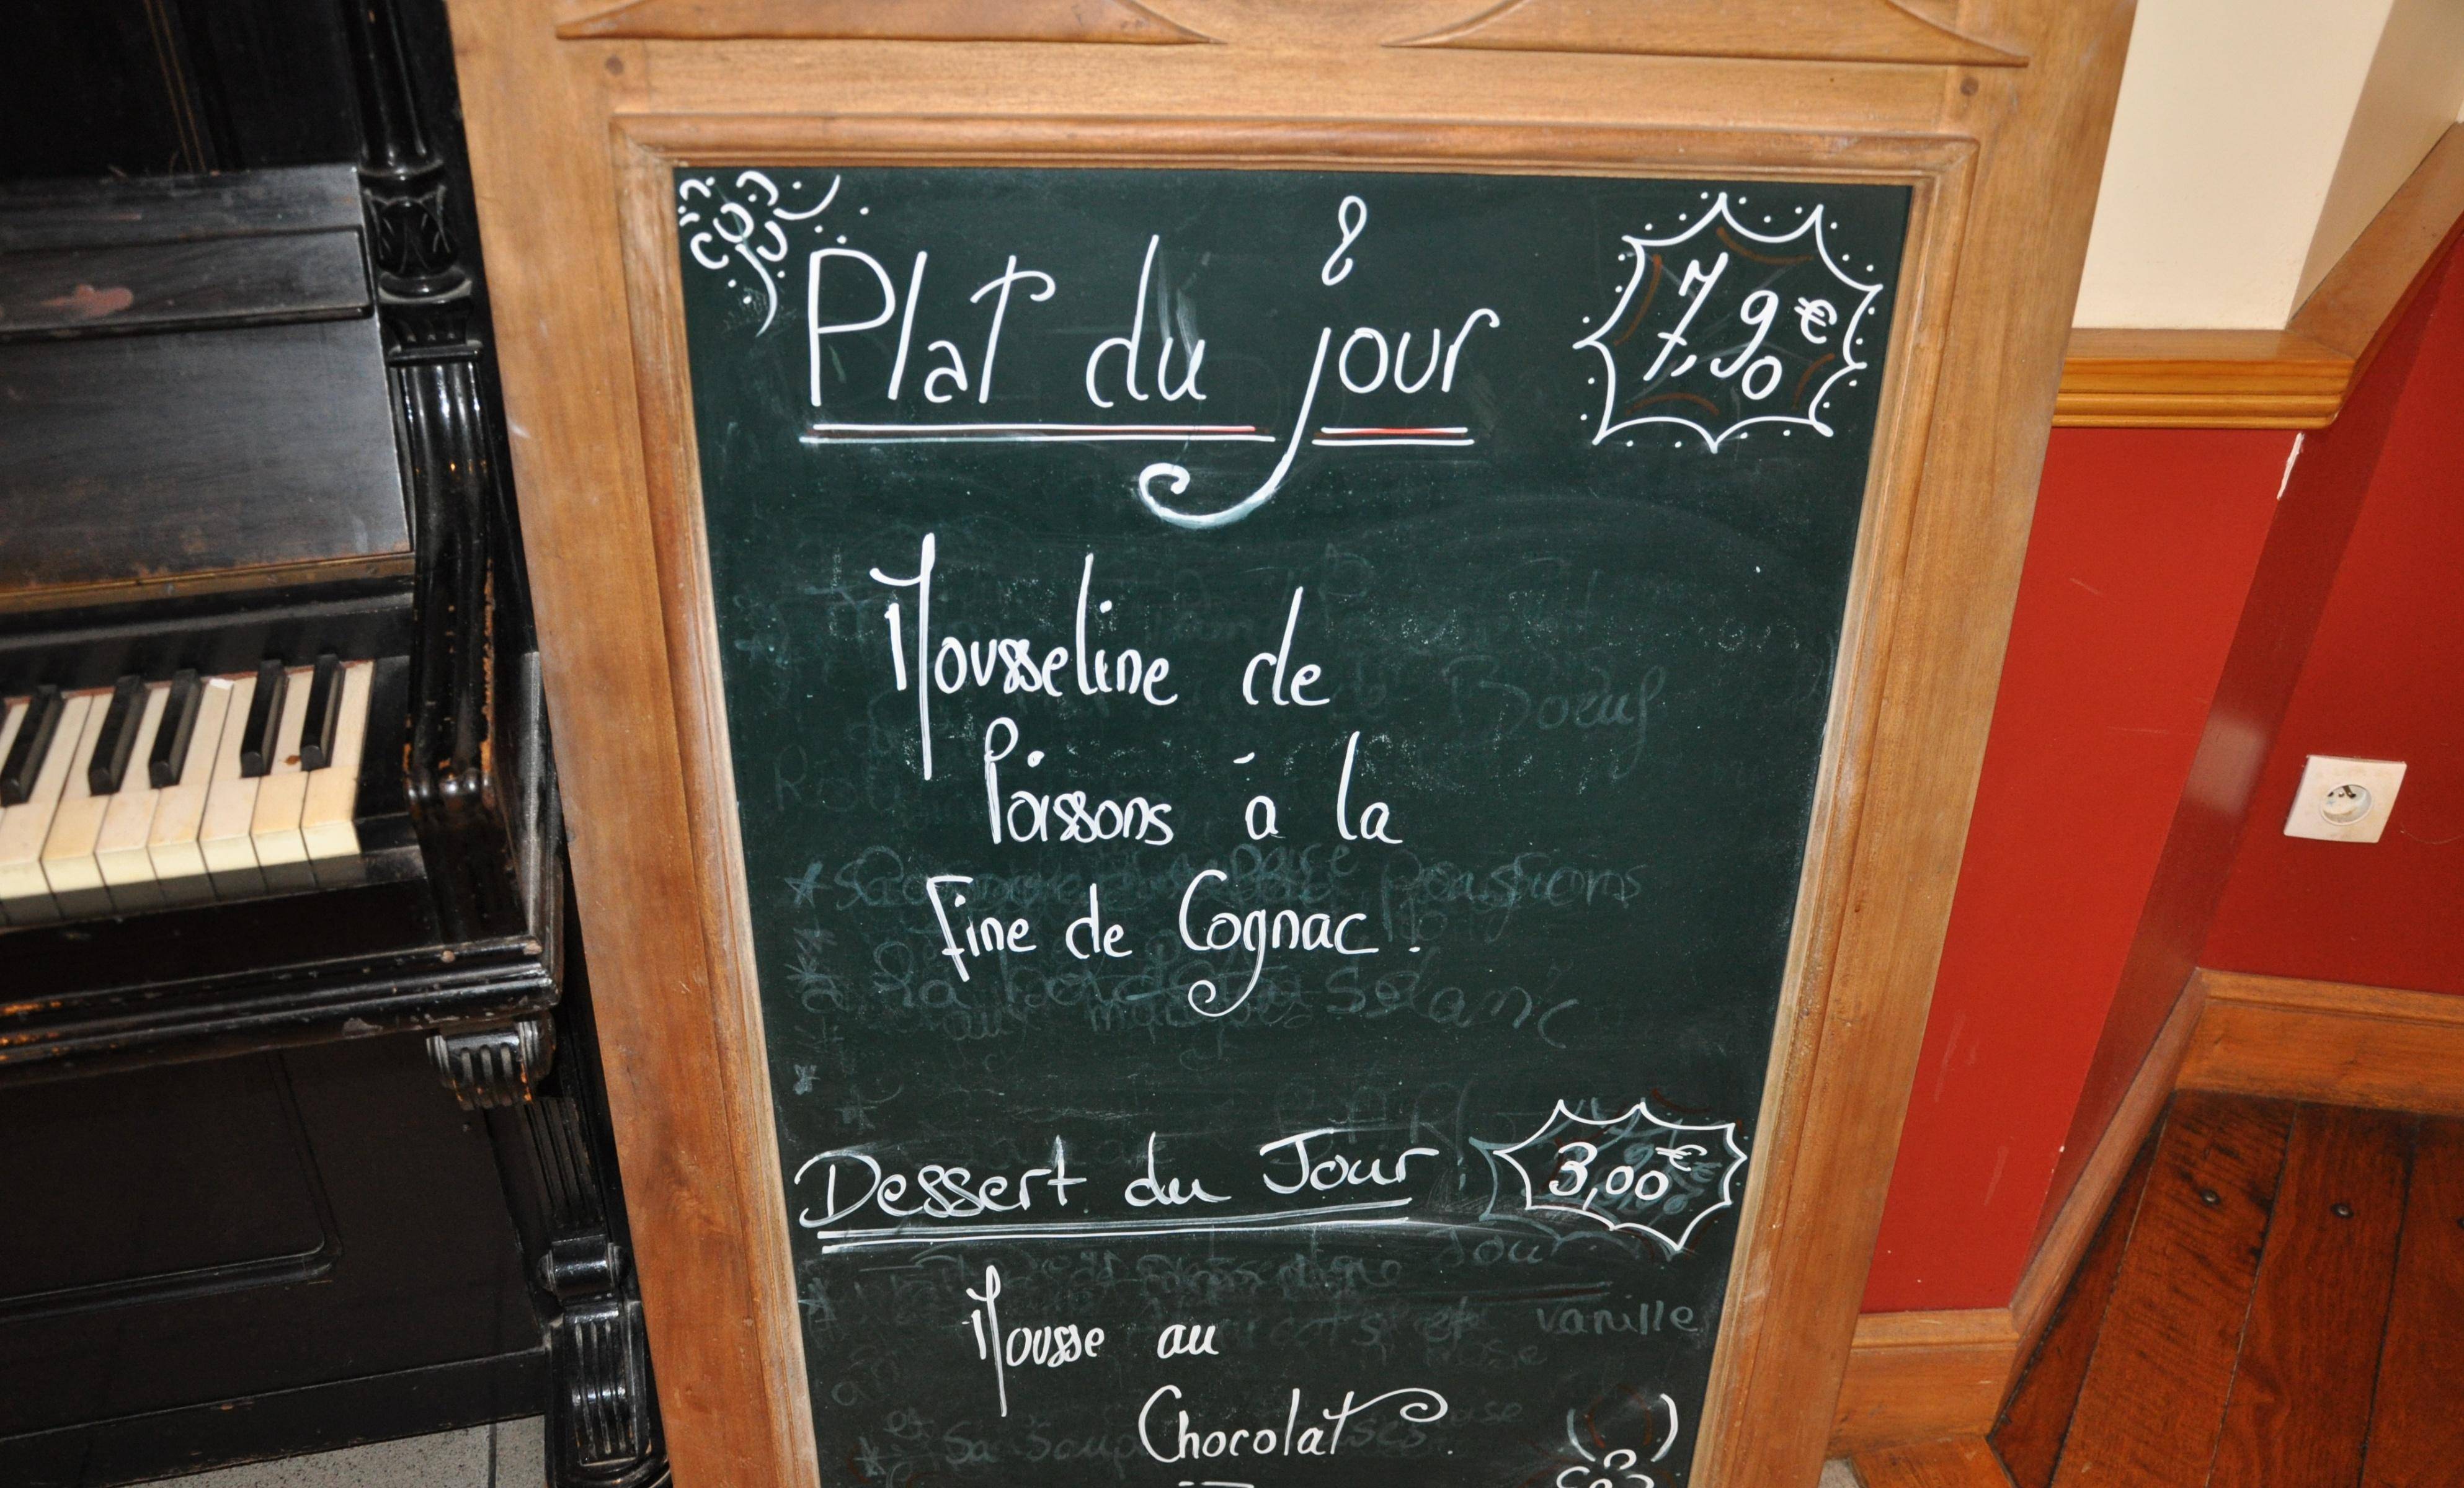 Plat du jour
7,90€
Mousseline de
Poissons à la
Fine de Cognac.
Dessert du Jour
3,00€
Mousse au
Chocolat.
Boeuf
vanille